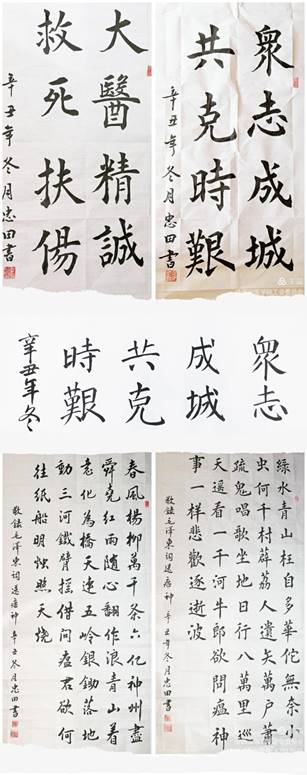 大醫精誠
救死扶傷
辛丑年冬月忠田書
眾志成城
共克時艱
辛丑年冬月忠田書
眾志
成城
共克
時艱
辛丑年冬
綠水青山枉自多華佗無奈小
虫何千村薜荔人遺矢萬戶蕭
疏鬼唱歌坐地日行八萬里巡
天遥看一千河牛郎欲問瘟神
事一樣悲歡逐逝波
敬錄毛澤東詞送瘟神 辛丑冬月忠田書
春風楊柳萬千条六億神州盡
舜堯紅雨随心翻作浪青山着
意化為橋天連五岭銀鋤落地
動三河鐵臂搖借問瘟君欲何
往紙船明燭照天燒
敬錄毛澤東詞送瘟神 辛丑冬月忠田書